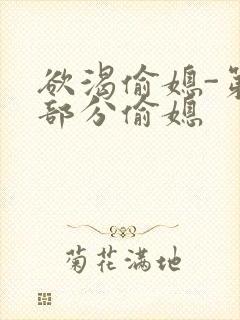 欲渴偷媳-第
部分偷媳
菊花满地